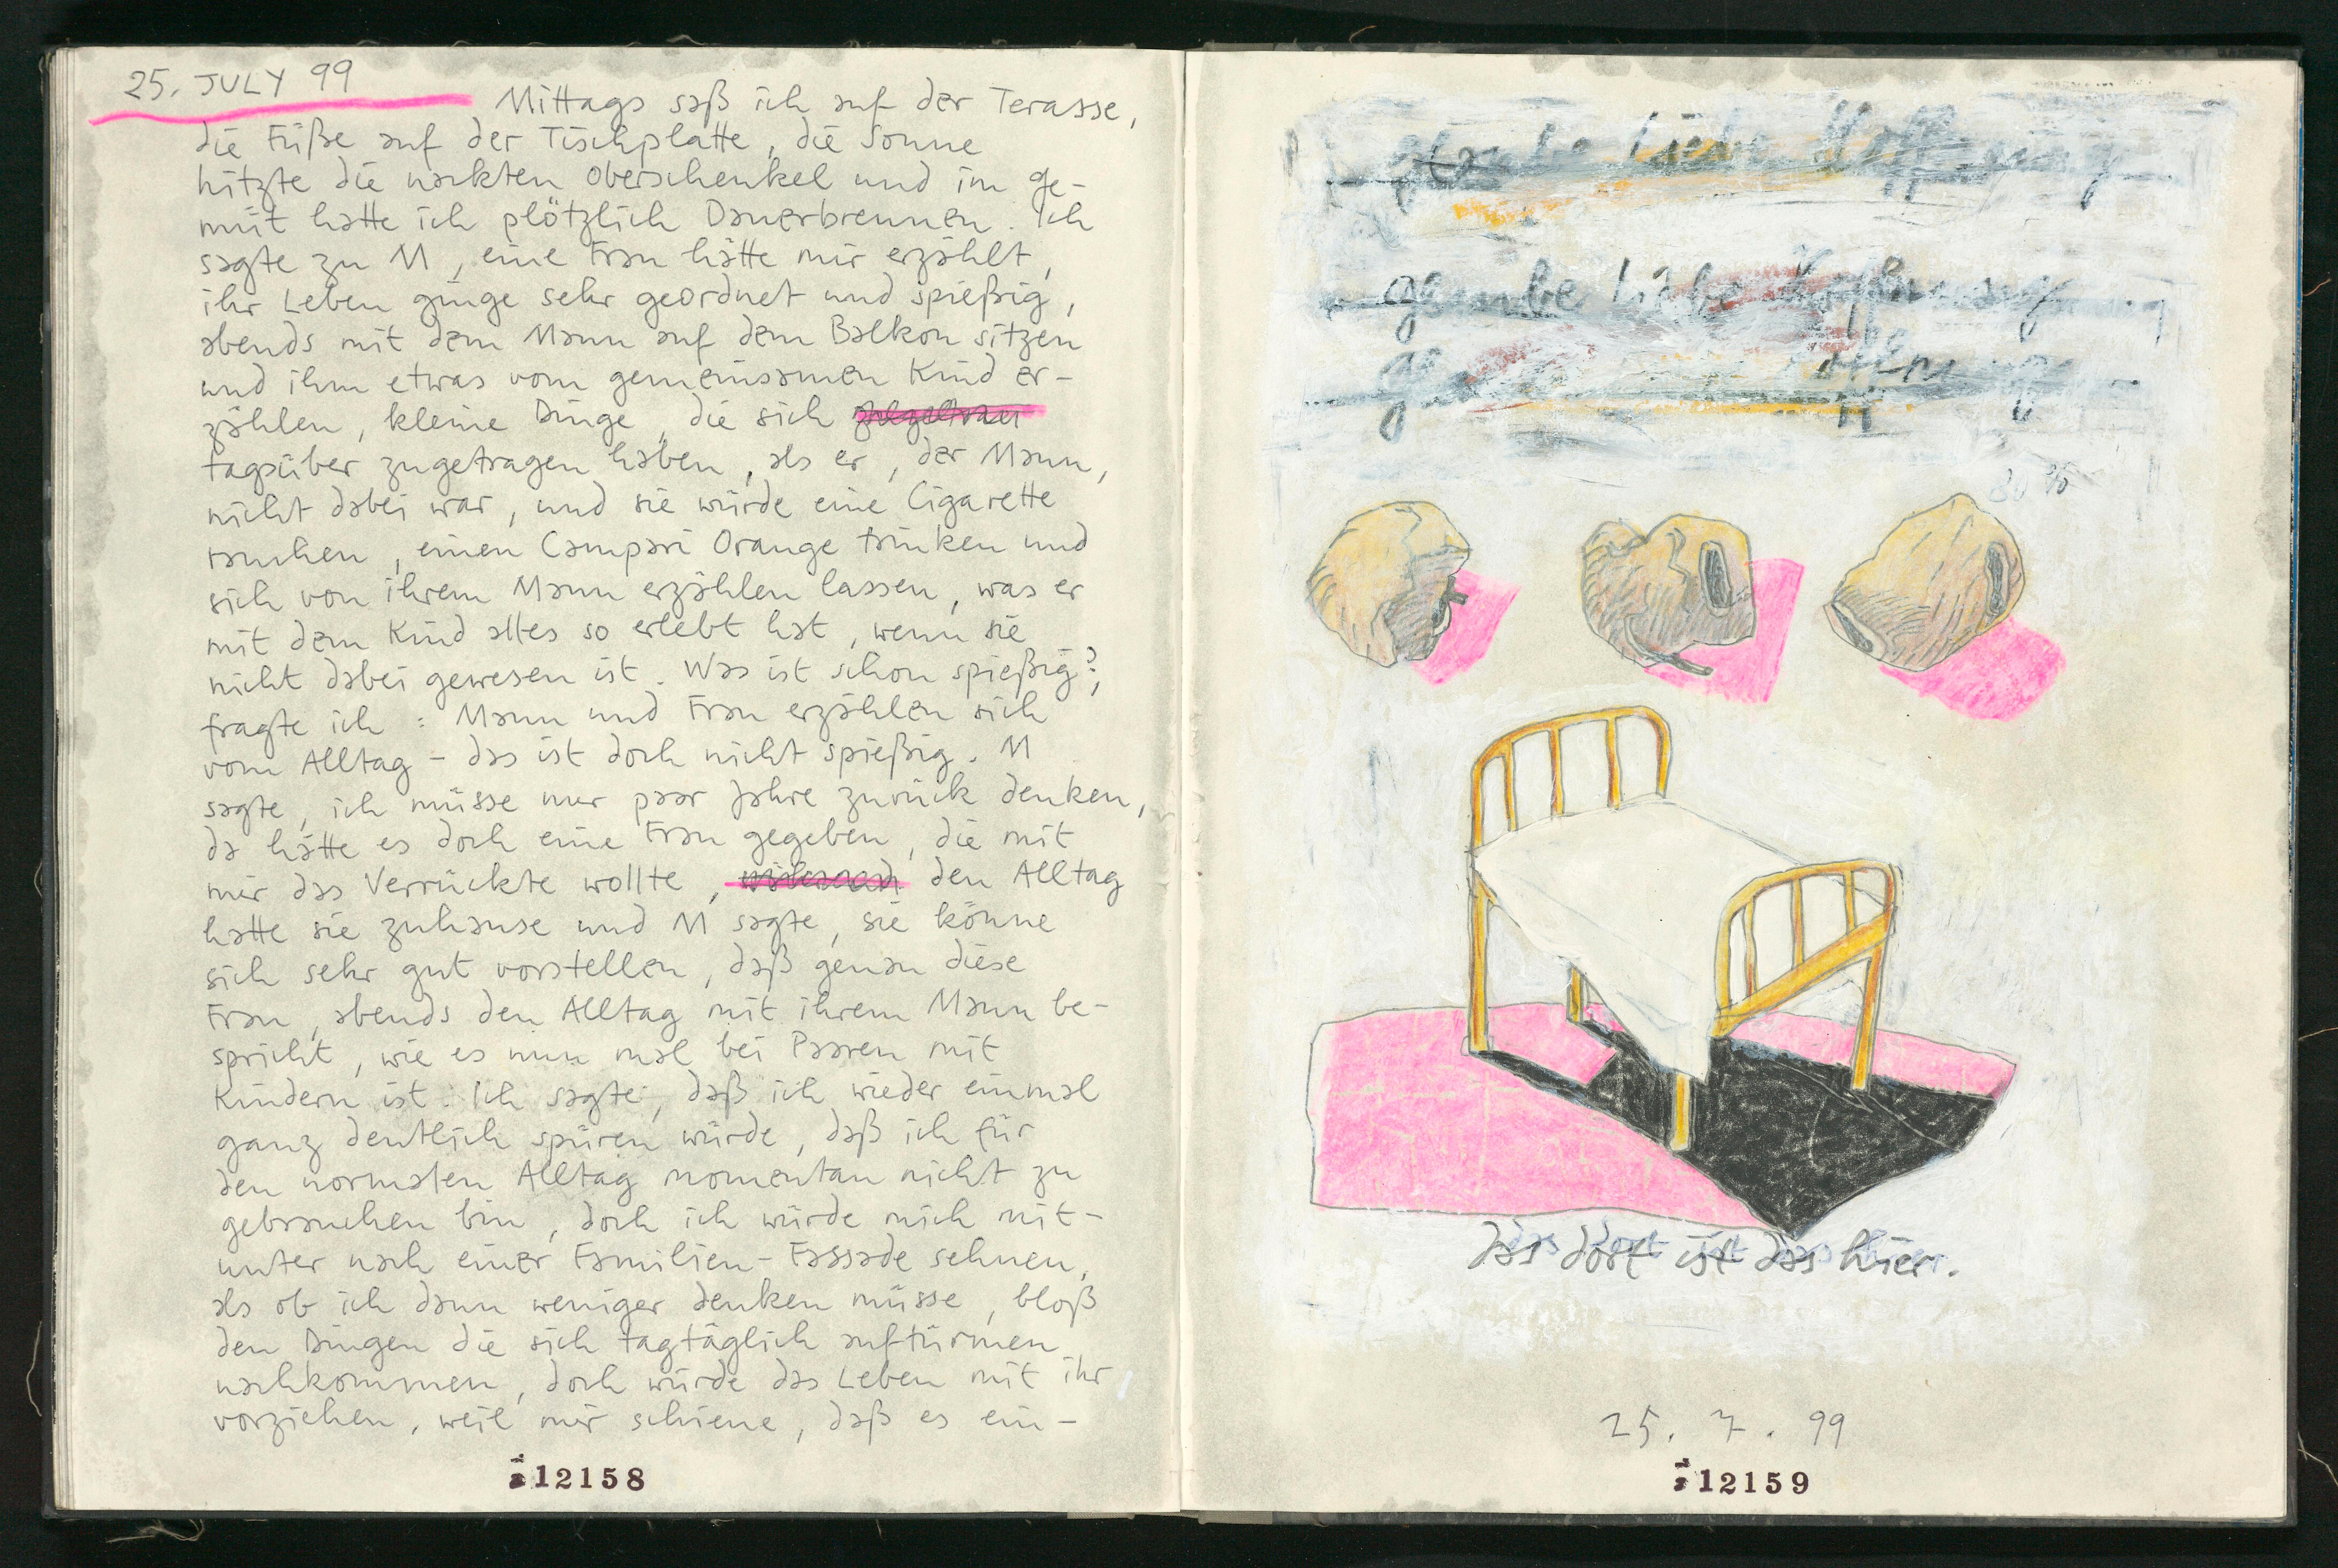 25. JULY 99
Mittags saß ich auf der Terasse,
die Füße auf der Tischplatte, die Sonne
hitzte die nackten Oberschenkel und im Ge-
müt hatte ich plötzlich Dauerbrennen. Ich
sagte zu M, eine Frau hätte mir erzählt,
ihr Leben ginge sehr geordnet und spießig,
abends mit dem Mann auf dem Balkon sitzen
und ihm etwas vom gemeinsamen Kind er-
zählen, kleine Dinge, die sich
tagsüber zugetragen haben, als er, der Mann,
nicht dabei war, und sie würde eine Cigarette
rauchen, einen Campari Orange trinken und
sich von ihrem Mann erzählen lassen, was er
mit dem Kind alles so erlebt hat, wenn sie
nicht dabei gewesen ist. Was ist schon spießig?,
fragte ich: Mann und Frau erzählen sich
vom Alltag - das ist doch nicht spießig. M
sagte, ich müsse nur paar Jahre zurück denken,
da hätte es doch eine Frau gegeben, die mit
mir das Verrückte wollte, den Alltag
hatte sie zuhause und M sagte, sie könne
sich sehr gut vorstellen, daß genau diese
Frau, abends den Alltag mit ihrem Mann be-
spricht, wie es nun mal bei Paaren mit
Kindern ist. Ich sagte, daß ich wieder einmal
ganz deutlich spüren würde, daß ich für
den normalen Alltag momentan nicht zu
gebrauchen bin, doch ich würde mich mit-
unter nach einer Familien-Fassade sehnen,
als ob ich dann weniger denken müsse, bloß
den Dingen die sich tagtäglich auftürmen
nachkommen, doch würde das Leben mit ihr
vorziehen, weil mir schiene, daß es ein-
12158
glaube Liebe Hoffnung
glaube Liebe Hoffnung
das dort ist das hier.
25. 7. 99
12159